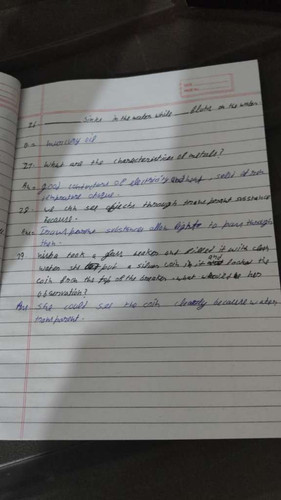 26 sinks in the water while floats on the water
Ans = oil
27 - What are the characteristics of metals?
Ans = good conductors of electricity solid at room
temperature
28 we can see objects through transparent substance
because.
Ans = substances allow light to pass through
them.
29 took a glass beaker and filled it with clean
water she put a silver coin in it and looked the
coin from the top of the beaker what her
observation?
Ans She could see the coin clearly because water
transparent.